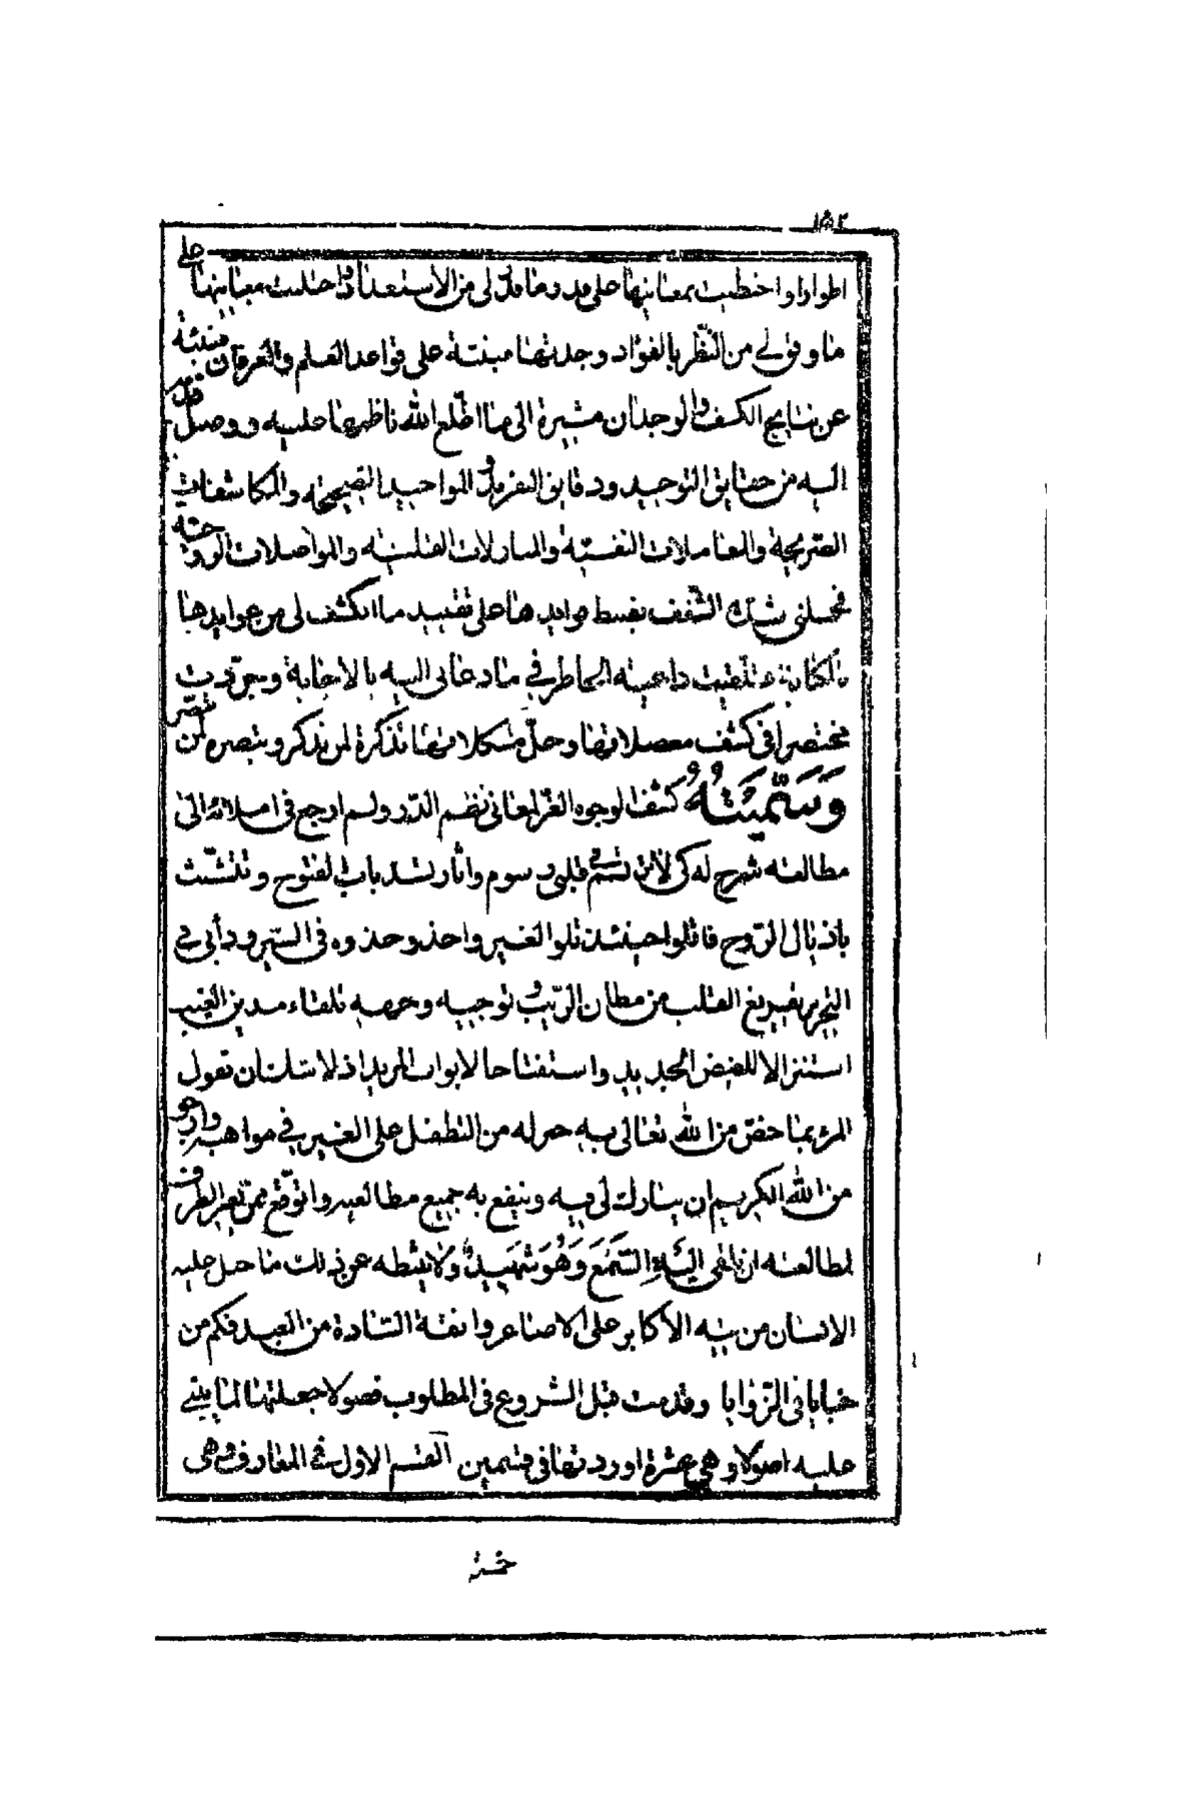 ١٥٢
اطوارا واحظيت بمعانيها على قدر ما قدّر لى من الاستعداد واجتليت معانيها على
ما وفق لى من النظر بالفؤاد وجدتها مبنيّة على قواعد العلم والعرفان منبئة
عن نتايج الكشف والوجدان مشيرة الى ما اطّلع الله ناظمها عليه ووصل قدّر
اليه من حقايق التوحيد ودقايق التفريد والمواجيد الصحيحة والمكاشفات
الصريحة والمعاملات النفسيّة والمنازلات القلبيّة والمواصلات الروحيّة
فحملنى شدّة الشغف ببسط فوايدها على تقييد ما انكشف لى من عوايدها
بالكتابة فتلقيت داعية الخاطر فى ما دعانى اليه بالاجابة وحرّرت
مختصرا فى كشف معضلاتها وحلّ مشكلاتها تذكرة لمن تذكر وتبصرة لمن تبصّر
وَسَمَّيْتُهُ كشف الوجوه الغرّ لمعانى نظم الدّر ولم ارجع فى املائه الى
مطالعة شرح له كى لا ترتسم فى قلبى رسوم واثار تسد باب الفتوح وتتشبّث
باذيال الروح فاتلوا حينئذ تلو الغير واحذو حذوه فى السير ودأبى فى
التحرير تفريغ القلب من مظان الريب وتوجيه وجهه تلقاء مدين الغيب
استنزالا للفيض الجديد واستفتاحا لابواب المزيد اذ لاشك ان تعول
المرء بما خصّ من الله تعالى به خير له من التطفل على الغير فى مواهبه وارجو
من الله الكريم ان يبارك لى فيه وينفع به جميع مطالعيه واتوقع ممن يعير الطرف
لمطالعته ان يلقى اليه السَّمْعَ وَهُوَ شَهِيدٌ ولا يثبطه عن ذلك ما جبل عليه
الانسان من نبه الاكابر على الاصاغر وانفة السادة من العبيد فكم من
خبايا فى الزوايا وقدمت قبل الشروع فى المطلوب فصولا جعلتها لما يبتنى
عليه اصولا وهى عشرة اوردتها فى قسمين القسم الاول فى المعارف وهى
خمسة